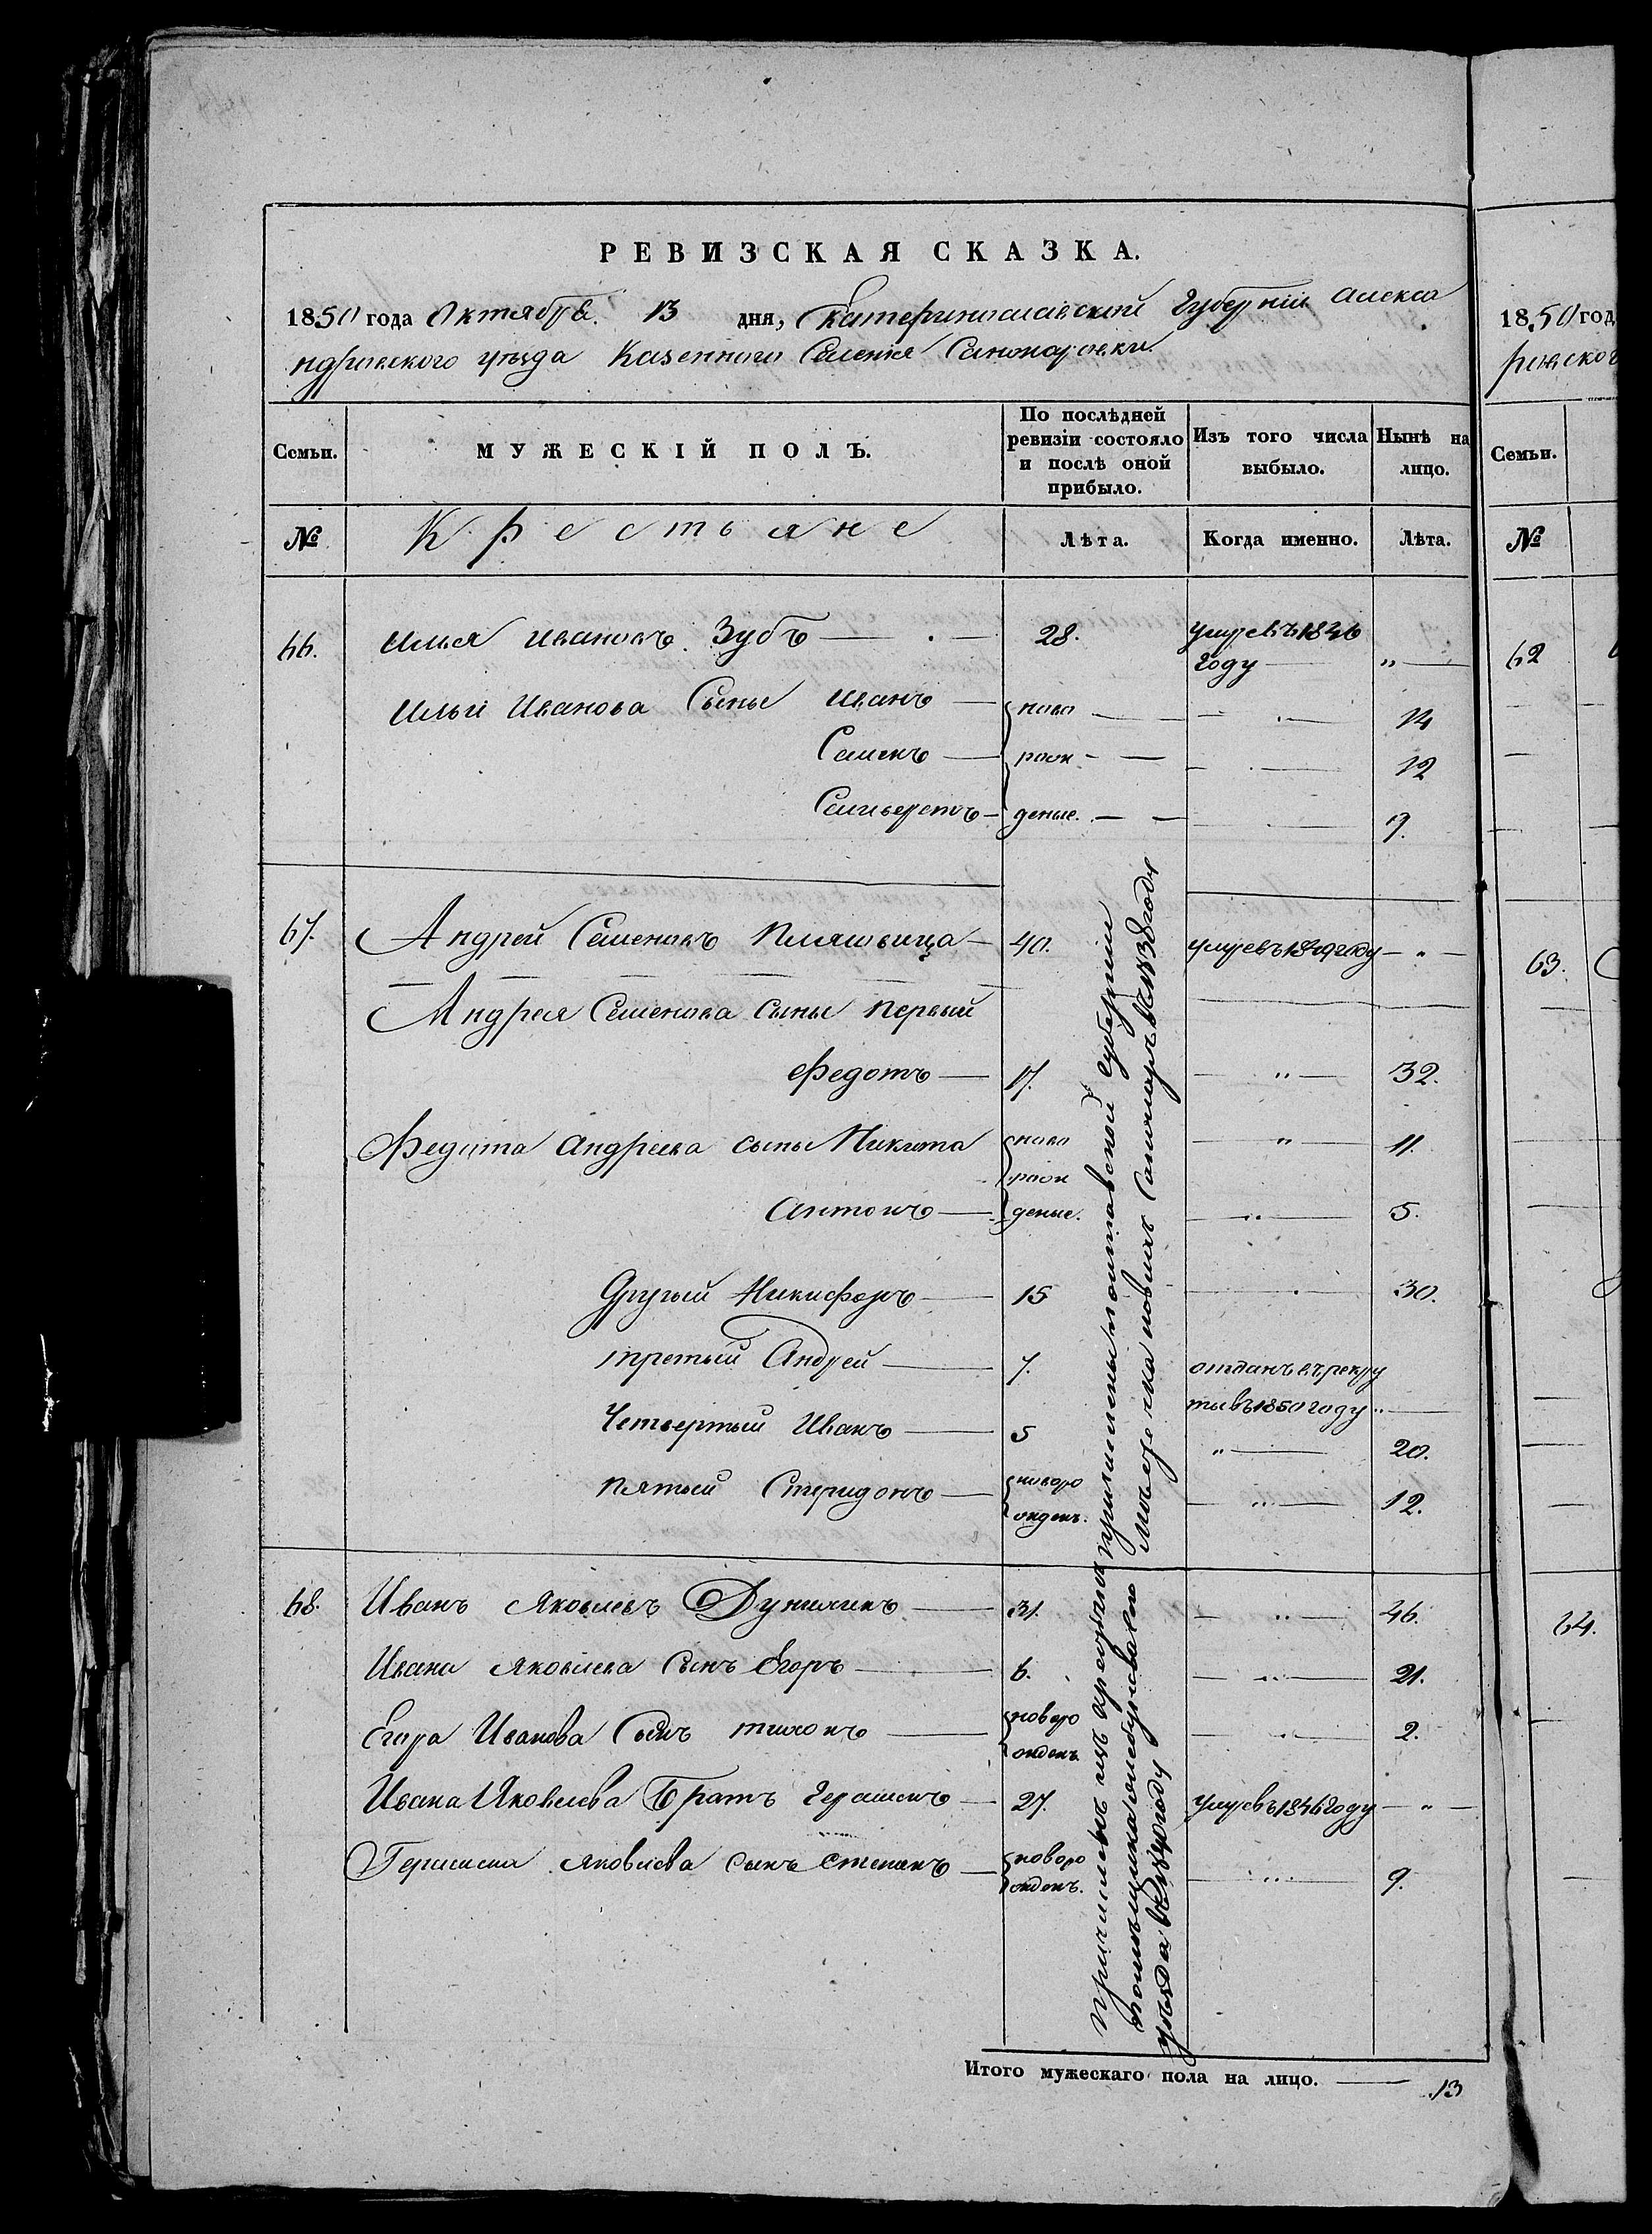 РЕВИЗСКАЯ СКАЗКА.
1850 года Октября 13 дня, Екатеринославской Губерніи Алекса
ндровского уѣзда Казенного Селенія
Семьи.
МУЖЕСКІЙ ПОЛЪ.
По послѣдней ревизіи состояло и послѣ оной прибыло.
Изъ того числа выбыло.
Нынѣ на лицо.
№
Крестьяне
Лѣта.
Когда именно.
Лѣта.
66. Илья Ивановъ Зубъ — 28. умре въ 1846
году — " —
Ильи Иванова Сыны Иванъ — ново — 14
Семенъ — рож — 12
Сильверстъ — деные. — 9.
67. Андрей Семеновъ — 40. умре въ 1849 году — " —
Андрея Семенова сыны первый
Федотъ — 17. — " — 32.
Федота Андреева сыны Никита ново — " — 11.
рож
Антонъ — деные. — " — 5.
Другий Никифоръ — 15 — 30.
третьий Андрей — 7. отданъ въ рекру
ты въ 1850 году " —
Четвертый Иванъ — 5 " — 20.
пятый Спиридонъ — новоро — " — 12.
жденъ.
68. Иванъ Яковлевъ — 31. — " — 46.
Ивана Яковлева Сынъ Егоръ — 6. — " — 21.
Егора Иванова Сынъ тихонъ — новоро — " — 2.
жденъ
Ивана Яковлева Братъ Герасимъ — 27. умре въ 1846 году — " —
Герасима Яковлева сынъ степанъ — новоро — " — 9.
жденъ.
причислены полтавской губерніи
въ 1838 году
уѣзда
Итого мужескаго пола на лицо. — 13
1850 год
Семьи.
№
62
63.
64.